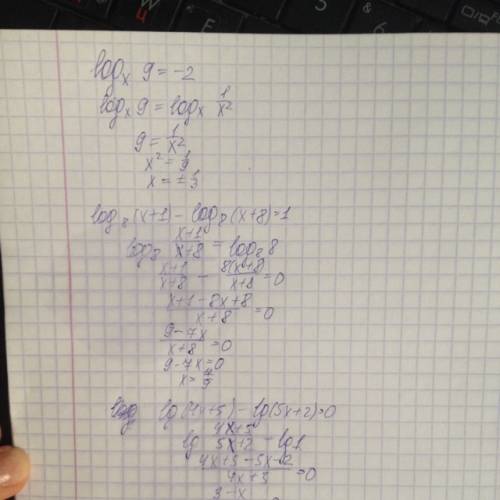 log_x 9 = -2
log_x 9 = log_x 1/x²
9 = 1/x²
x² = 1/9
x = ± 1/3
log_8 (x+1) - log_8 (x+8) = 1
log_8 (x+1)/(x+8) = log_8 8
(x+1)/(x+8) - 8(x+8)/(x+8) = 0
(x+1-8x+8)/(x+8) = 0
(9-7x)/(x+8) = 0
9-7x=0
x = 7/9
lg(4x+5) - lg(5x+2) = 0
lg (4x+5)/(5x+2) = lg 1
(4x+5-5x-2)/(4x+5) = 0
3-x